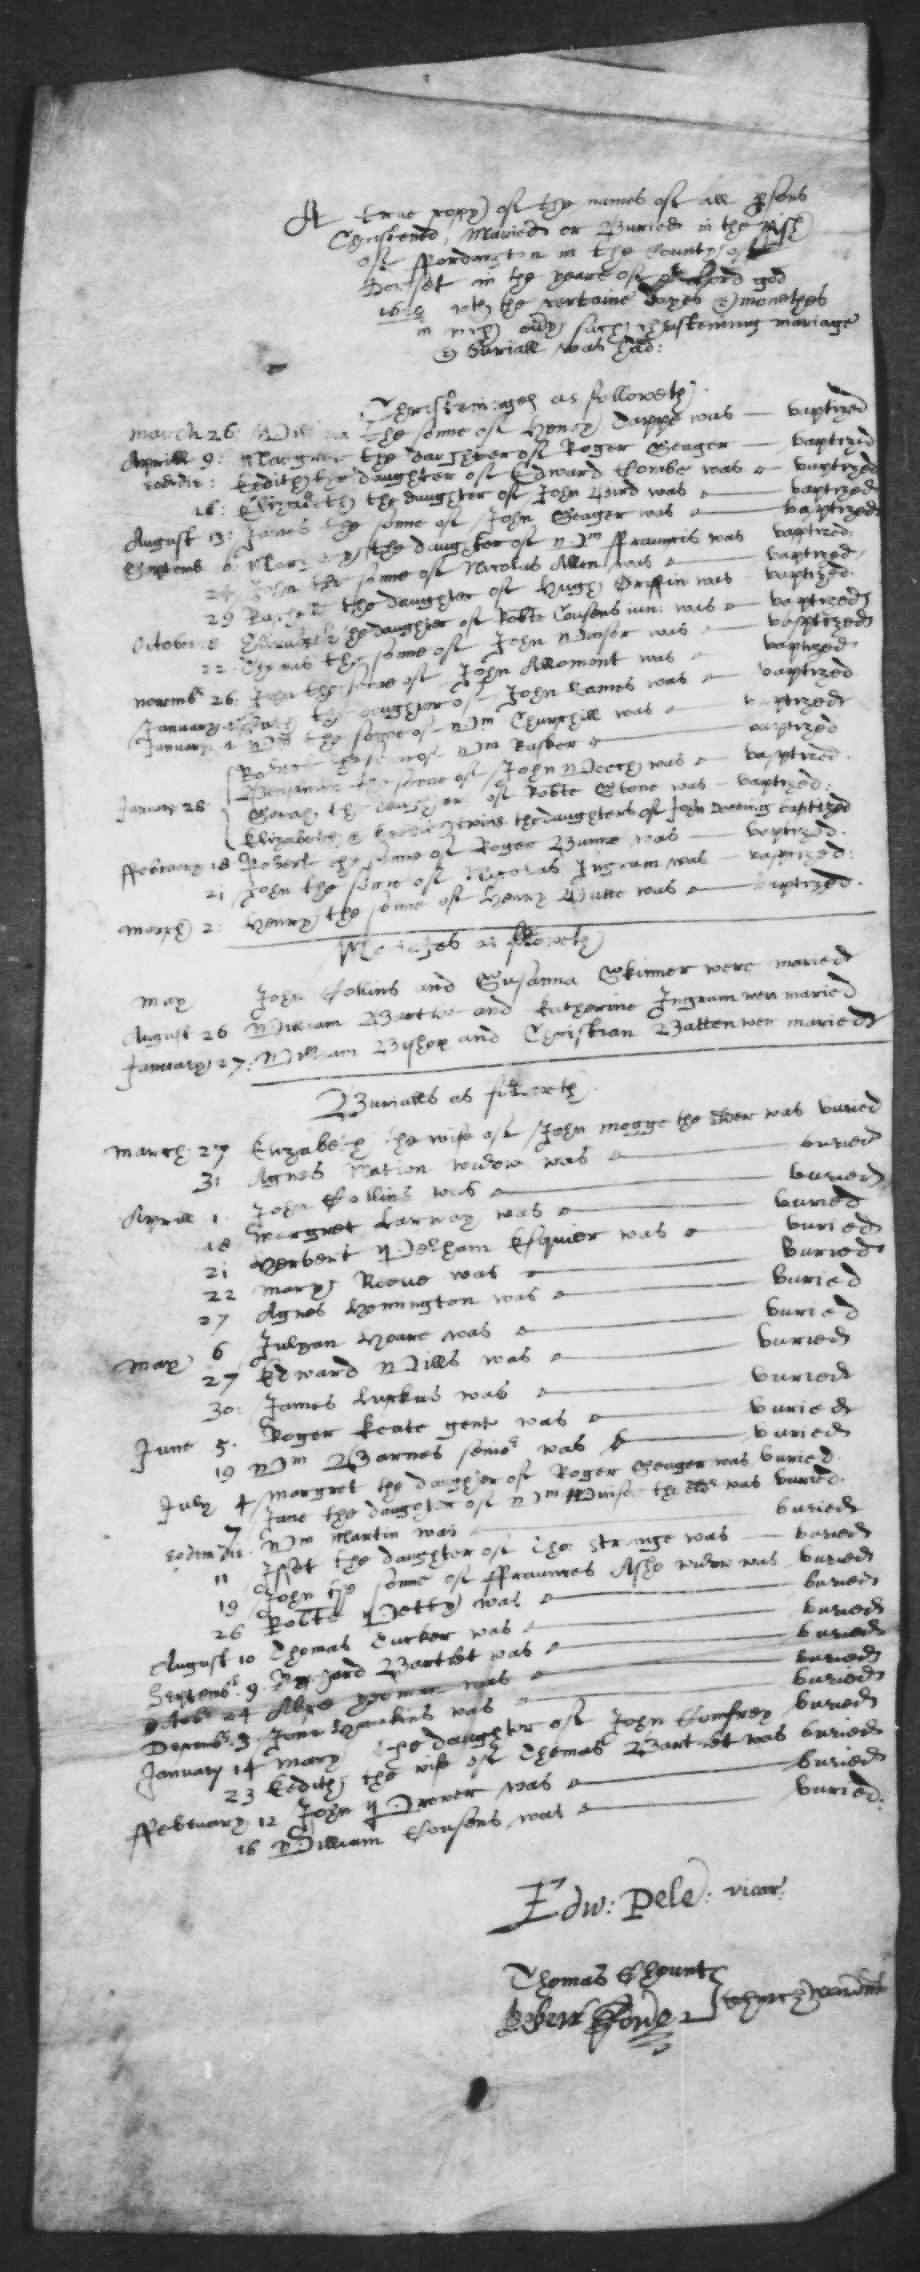 A true copy of the names of all psons
Christened, Maried or Buried in the pish
of ffordington in the County of
Dorset in the yeare of or Lord god
16 wth the certaine dayes & monethes
in wch evry such christening mariage
& buriall was had:
Christeninges as followeth.
March 26 the sonne of Henry Dappe was baptized
Aprill 9: Margaret the daughter of Roger Seager baptized
eodm die: Eedith the daughter of Edward Combe was baptized
16: Elizabeth the daughter of John Bird was baptized
August 13: James the sonne of John Seager was baptized
Septemb 6 Mary the daughter of Wm ffrauncis was baptized
24 John the sonne of Nicolas Allen was baptized
29 Rachell the daughter of Hugh Griffin was baptized
October 8 the daughter of Robte Cousens iun: was baptized
22 Thomas the sonne of John Winsor was baptized
Novemb 26 John the sonne of John Allomont was baptized
January the daughter of John Eames was baptized
January 4 Wm the sonne of Wm Churchill was baptized
Robert the sonne of Wm Barber baptized
January 28 Beniamin the sonne of John Veech was baptized
Sarah the daughter of Robte Stone was baptized
Elizabeth & twins the daughters of John Deering baptized
ffebruary 18 Robert the sonne of Roger Bunne was baptized
21 John the sonne of Nicolas Ingram was baptized:
March 2: Henry the sonne of Henry Butte was baptized.
Mariages as followeth
May John Collins and Susanna Skinner were maried
August 26 William Bartlet and Katherine Ingram were maried
January 27: William Bishop and Christian Batten were maried
Burialls as followeth.
March 27 Elizabeth the wife of John Mogge the elder was buried
31 Agnes Nation widow was buried
Aprill 1 John Collins was buried
18 Margret Larway was buried
21 Herbert Pelham Esquier was buried
22 Mary Reeve was buried
27 Agnes Hennington was buried
May 6 Julyan Hoare was buried
27 Edward Wills was buried
30: James Luckus was buried
June 5. Roger Keate gent was buried
19 Wm Barnes senior was buried
July 4 Margret the daughter of Roger Seager was buried
7 Jane the daughter of Wm the elder was buried.
eodm die. Wm Martin was buried
11 Isset the daughter of Tho: Strange was buried
19 John the sonne of ffraunces Ashe widow was buried
26 Robte Petty was buried
August 10 Thomas Tucker was buried
Septemb. 9 Richard Bartlet was buried
Octob 24 Alice was buried
Decemb. 3 Jone Hawkins was buried
January 14 Mary the daughter of John Comfrey buried
23 Eedith the wife of Thomas Bartlet was buried
ffebruary 12 John Prower was buried
16 William Cousens was buried.
Edw: Pele: vicar.
Thomas Chounte
Robert churchwardens